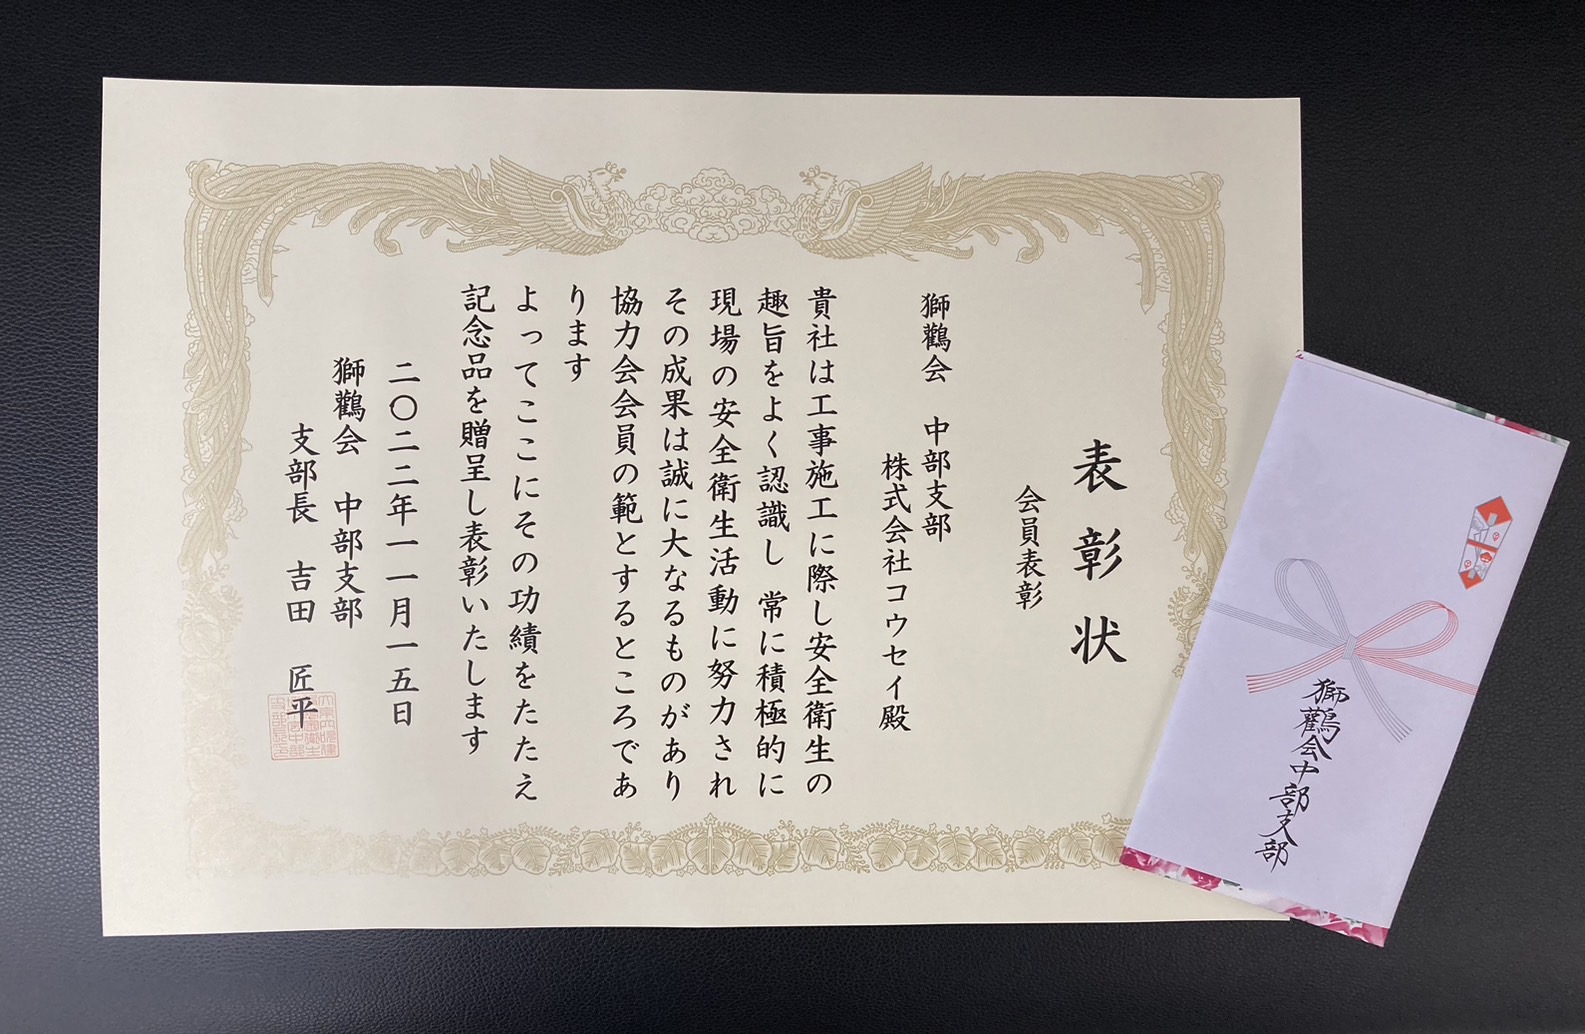 表彰状
会員表彰
獅鸛会 中部支部
株式会社コウセイ殿
貴社は工事施工に際し安全衛生の
趣旨をよく認識し 常に積極的に
現場の安全衛生活動に努力され
その成果は誠に大なるものがあり
協力会会員の範とするところであ
ります
よってここにその功績をたたえ
記念品を贈呈し表彰いたします
二〇二二年一一月一五日
獅鸛会 中部支部
支部長 吉田 匠平
獅鸛会中部支部